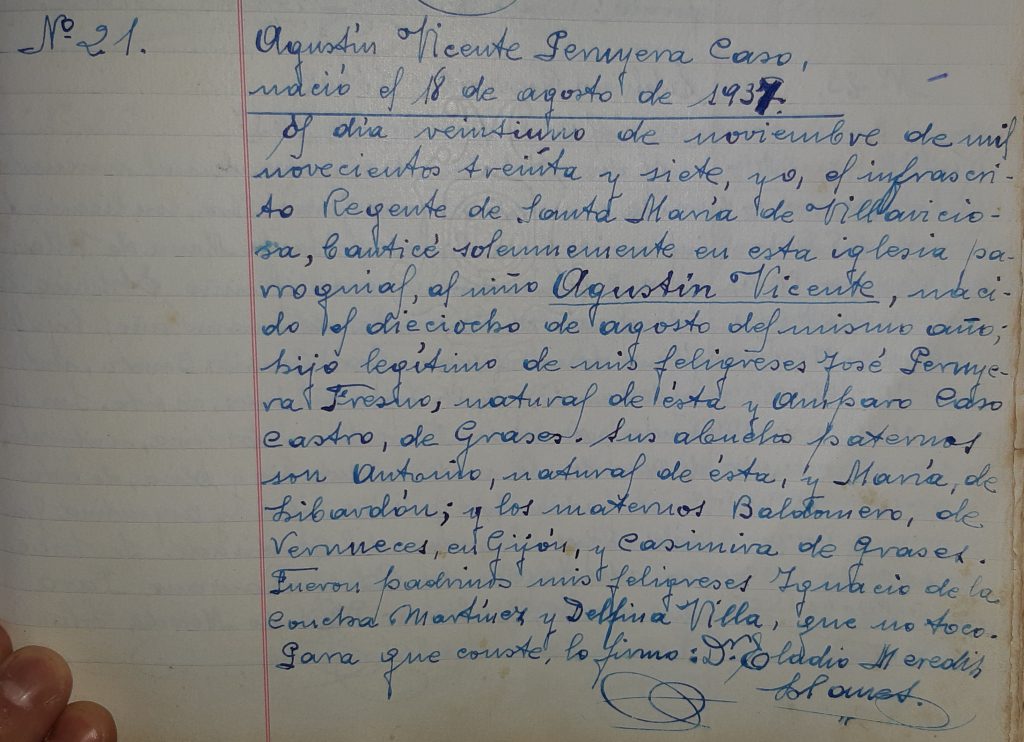 Nº 21.
Agustín Vicente Peruyera Caso,
nació el 18 de agosto de 1937.
El día veintiuno de noviembre de mil
novecientos treinta y siete, yo, el infrascri-
to Regente de Santa María de Villavicio-
sa, bauticé solemnemente en esta iglesia pa-
rroquial, al niño Agustín Vicente, naci-
do el dieciocho de agosto del mismo año;
hijo legítimo de mis feligreses José Peruye-
ra Fresno, natural de ésta y Amparo Caso
Castro, de Grases. Sus abuelos paternos
son Antonio, natural de ésta, y María, de
Libardón; y los maternos Baldomero, de
Verueces, en Gijón, y Casimira de Grases.
Fueron padrinos mis feligreses Ignacio de la
Concha Martínez y Delfina Villa, que no tocó.
Para que conste, lo firmo: Dr. Eladio Merediz